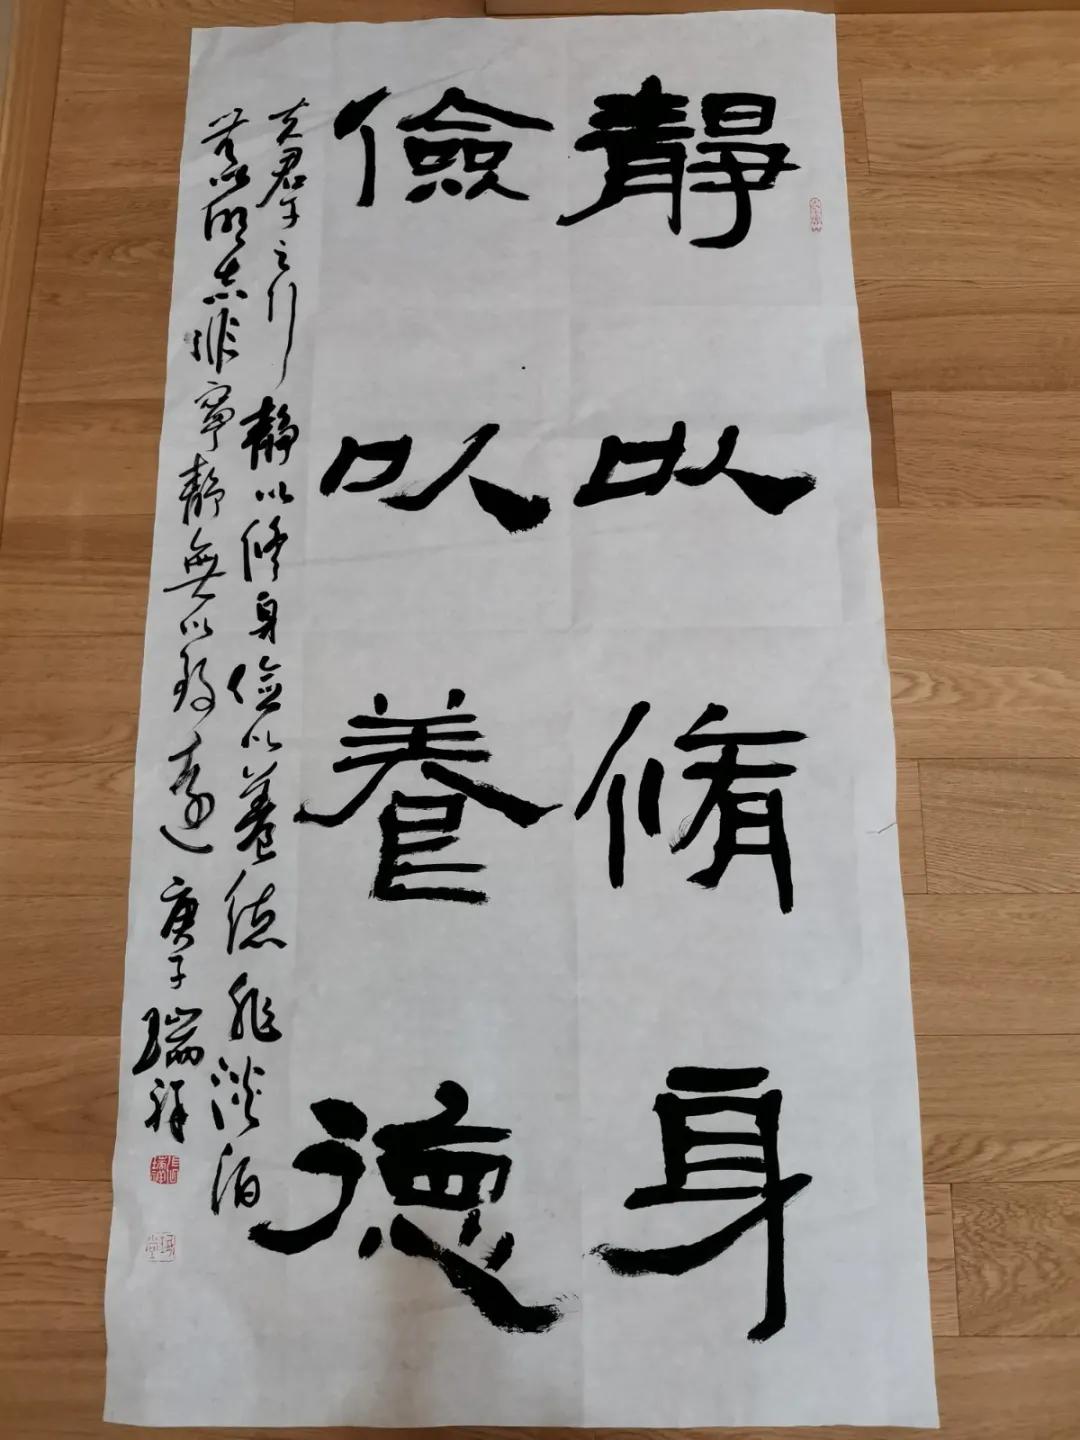 靜以脩身
儉以養德
夫君子之行靜以修身儉以養德非淡泊
無以明志非寧靜無以致遠庚子瑞祥